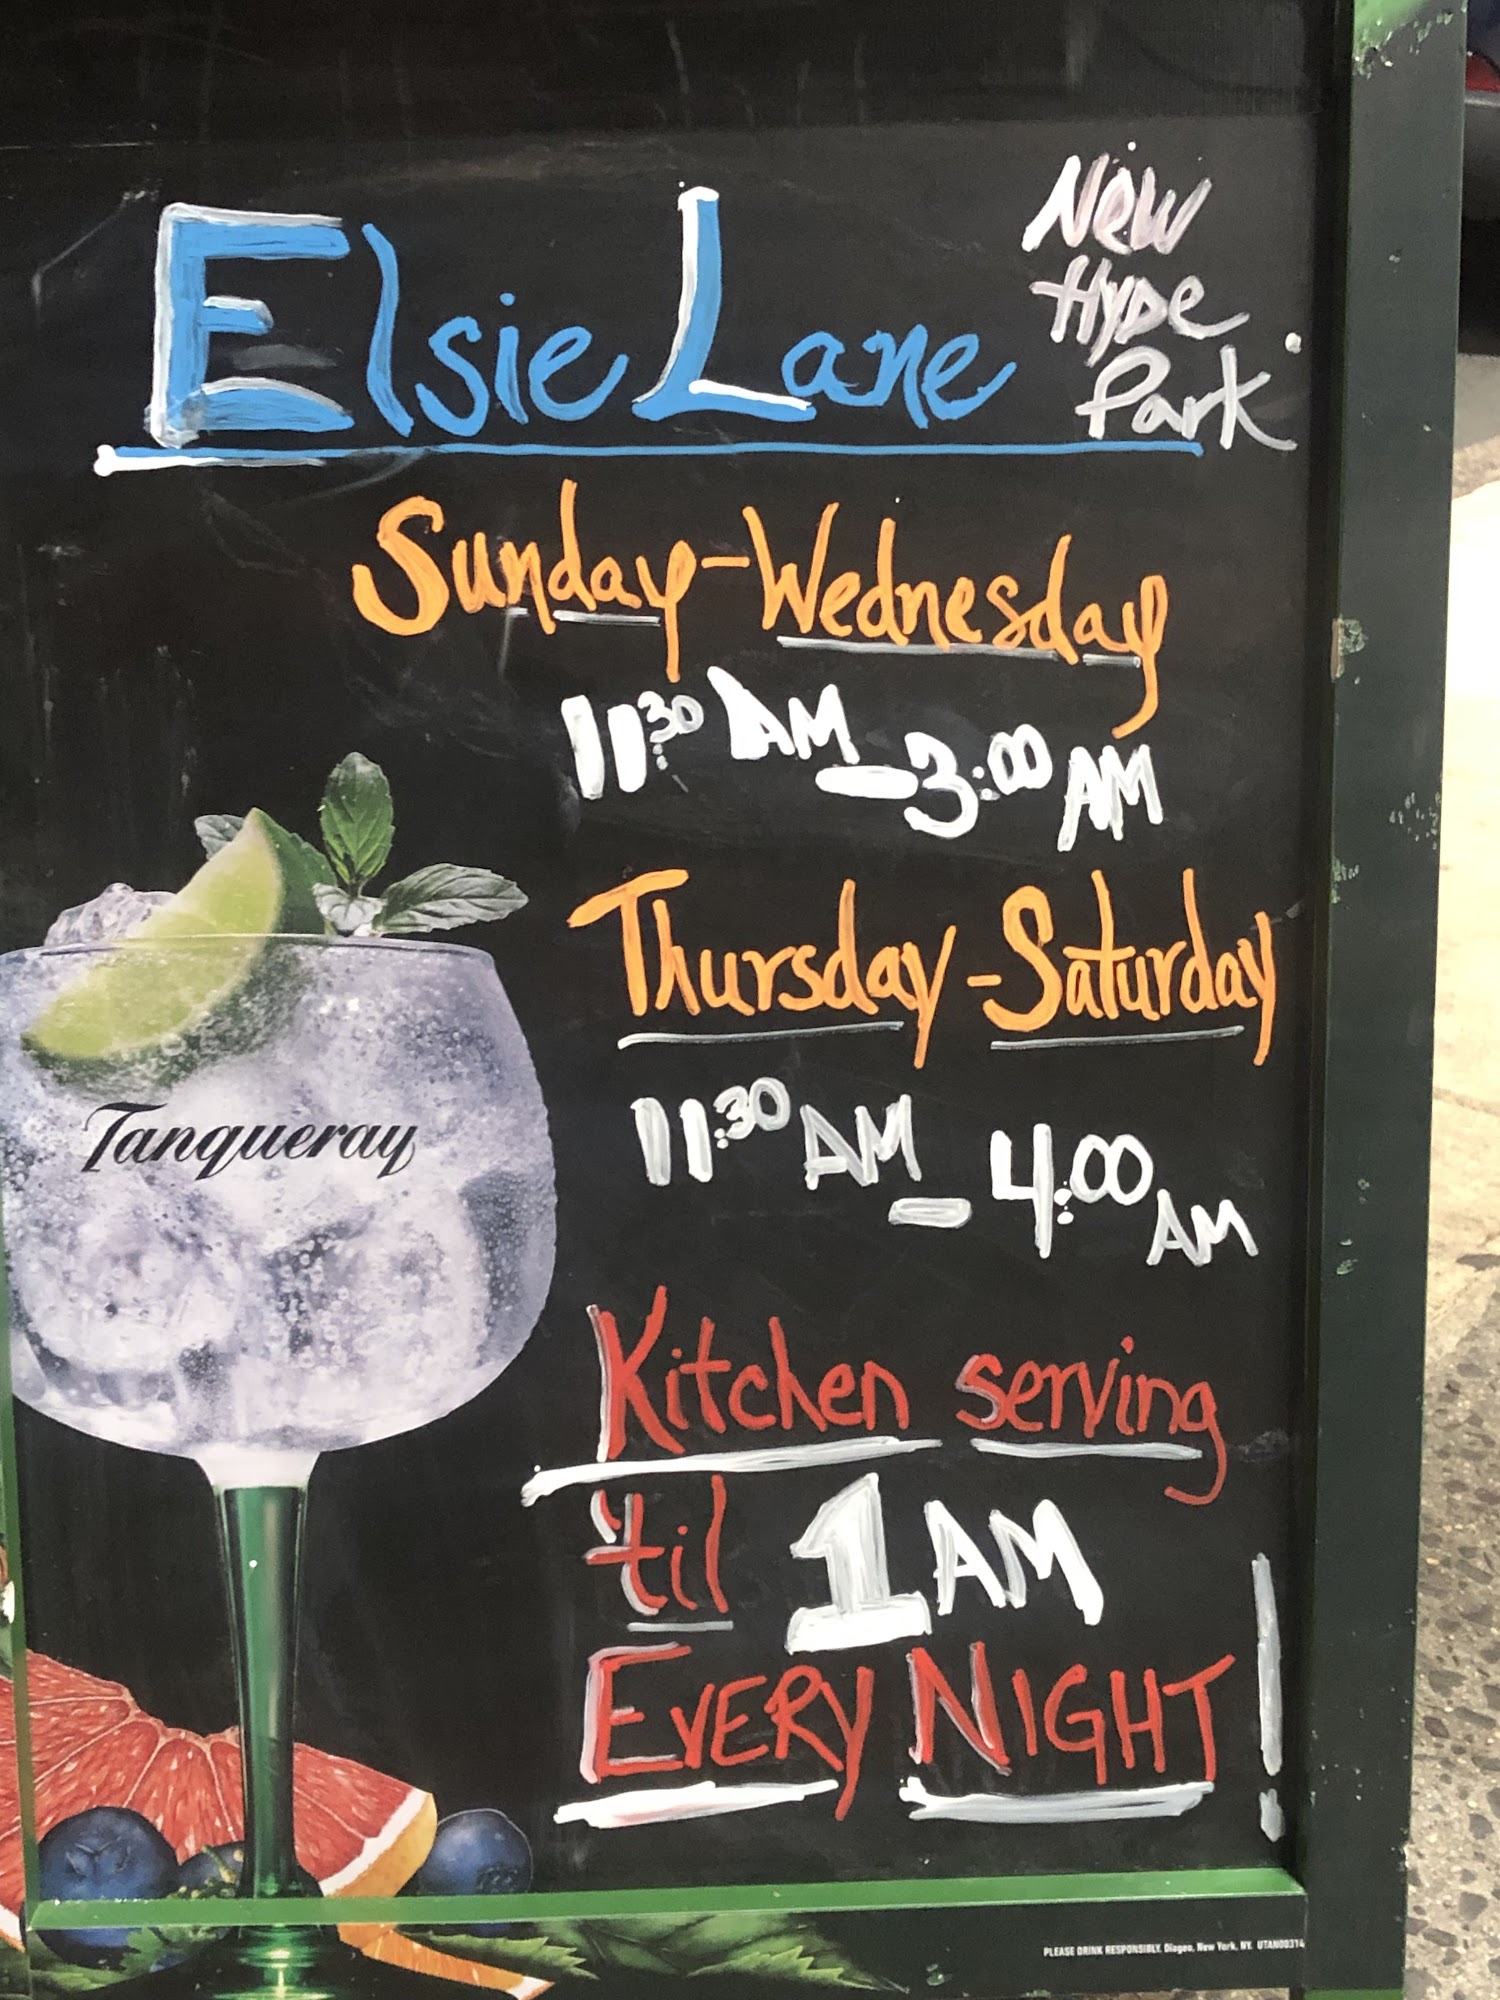 Elsie Lane
New
Hyde
Park
Sunday-Wednesday
11:30 AM - 3:00 AM
Thursday-Saturday
11:30 AM - 4:00 AM
Tanqueray
Kitchen serving
'til 1 AM
EVERY NIGHT!
PLEASE DRINK RESPONSIBLY. Diageo, New York, NY. UTAN00314